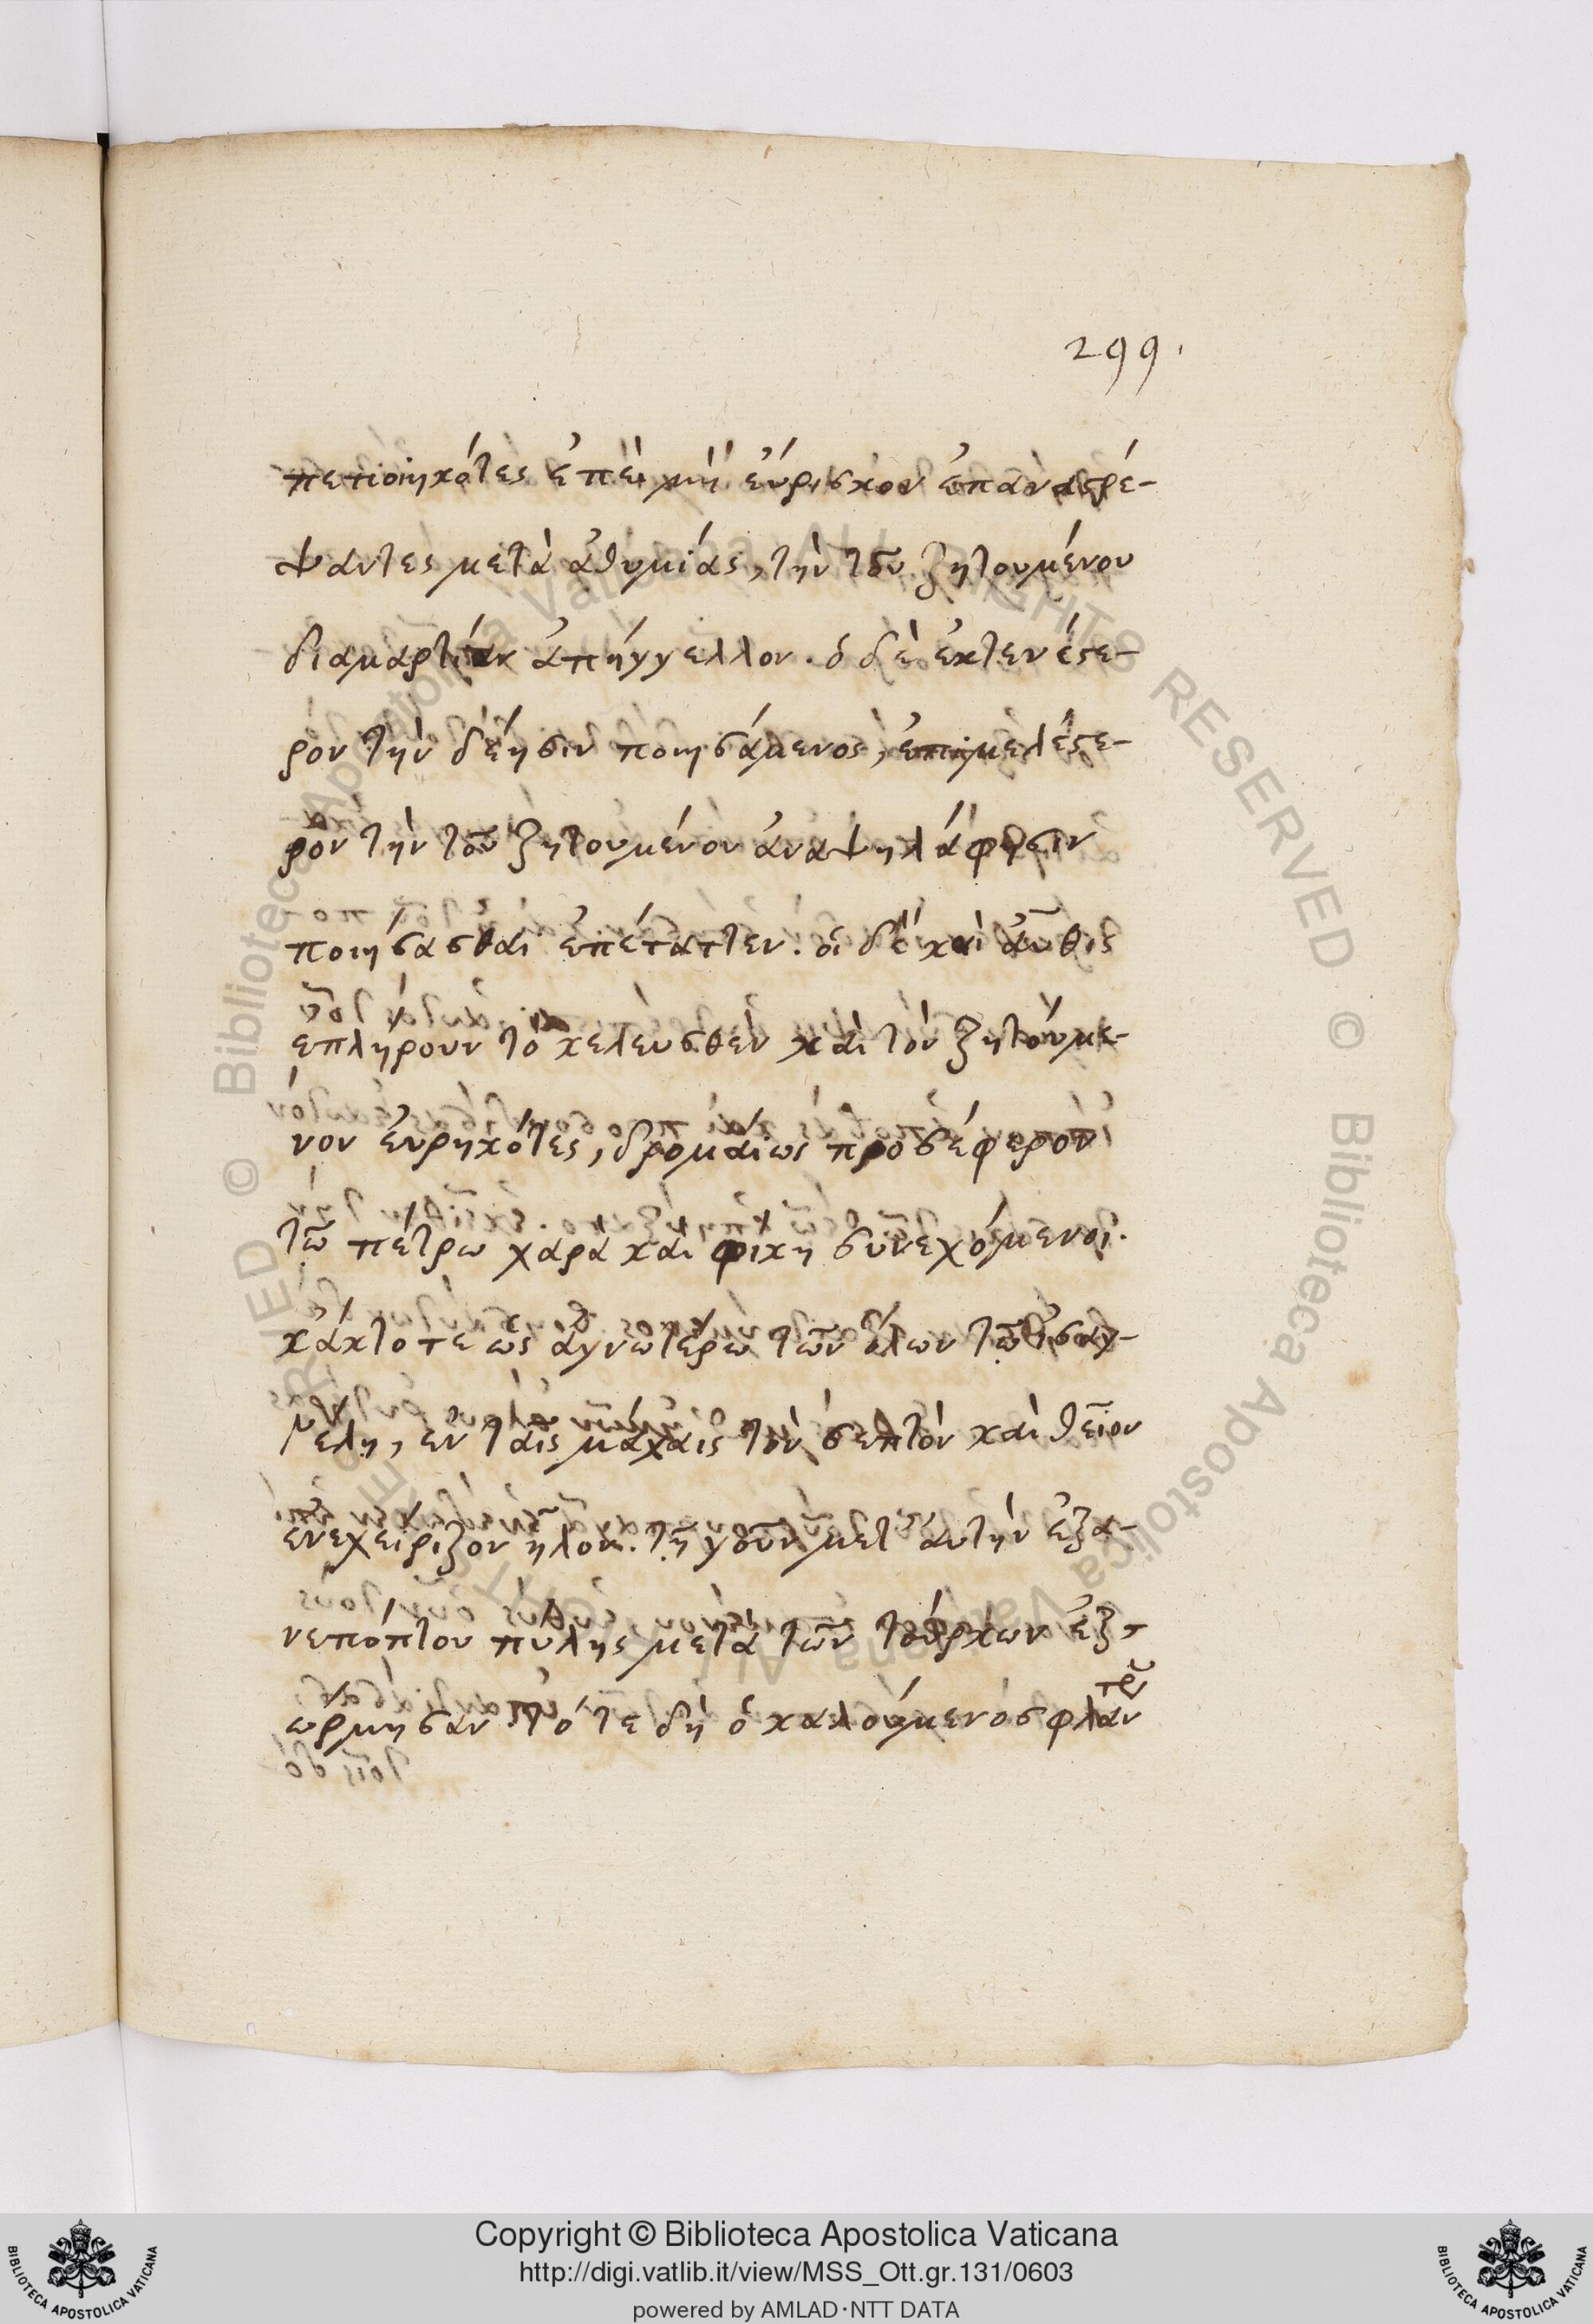 299.
πεποιηκότες ἐπεὶ μὴ εὕρισκον ἐπαναστρέ-
ψαντες μετὰ ἀθυμίας, τὴν τοῦ ζητουμένου
διαμαρτίαν ἀπήγγελλον. ὁ δὲ ἐκτενέστε-
ρον τὴν δέησιν ποιησάμενος, ἐπιμελέστε-
ρον τὴν τοῦ ζητουμένου ἀναψηλάφησιν
ποιήσασθαι ἐπέταττεν. οἱ δὲ καὶ αὖθις
ἐπλήρουν τὸ κελευσθὲν καὶ τὸν ζητούμε-
νον εὑρηκότες, δρομαίως προσέφερον
τῶ πέτρω χαρὰ καὶ φρίκη συνεχόμενοι.
κάκτοτε ὡς ἁγνωτέρω τῶν ὅλων τῶ
μέλη, ἐν ταῖς μάχαις τὸν σεπτὸν καὶ θεῖον
ἐνεχείριζον ἧλον. τῆ γοῦν μετ' αὐτὴν ἐξα-
πύλης μετὰ τῶν τούρκων ἐξ-
ώρμησαν. τότε δὴ ὁ καλούμενος
Copyright © Biblioteca Apostolica Vaticana
http://digi.vatlib.it/view/MSS_Ott.gr.131/0603
powered by AMLAD·NTT DATA
BIBLIOTECA APOSTOLICA VATICANA
BIBLIOTECA APOSTOLICA VATICANA